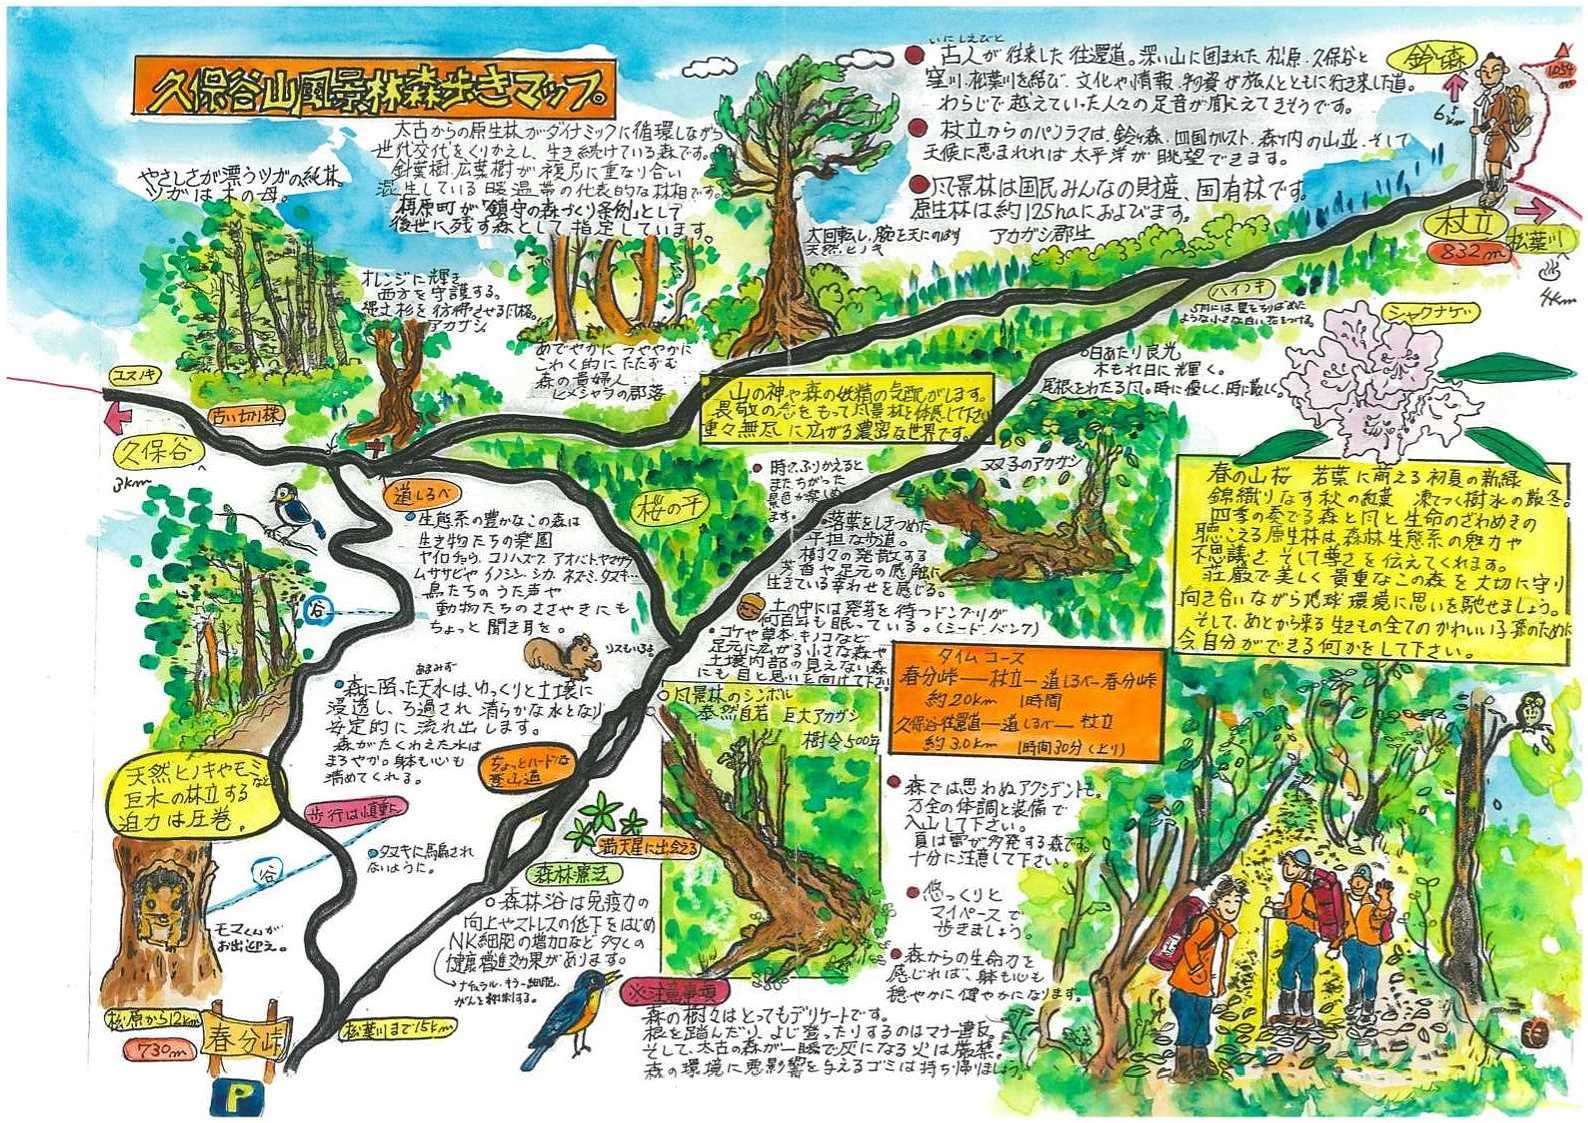 久保谷山風景林森歩きマップ。
太古からの原生林がダイナミックに循環しながら
世代交代をくりかえし、生き続けている森です。
針葉樹、広葉樹が複層に重なり合い
混生している暖温帯の代表的な林相です。
梼原町が「鎮守の森づくり条例」として
後世に残す森として指定しています。
やさしさが漂うツガの純林。
ツガは木の母。
いにしえびと
古人が往来した往還道。深い山に囲まれた松原・久保谷と
窪川・松葉川を結び、文化や情報、物資が旅人とともに行き来した道。
わらじで越えていった人々の足音が聞こえてきそうです。
杖立からのパノラマは、鈴ヶ森、四国カルスト、森ヶ内の山並、そして
天候に恵まれれば太平洋が眺望できます。
風景林は国民みんなの財産、国有林です。
原生林は約125haにおよびます。
アカガシ郡生
鈴ヶ森
1054m
6km
杖立
832m
松葉川
4km
大回転し、腕を天にのばす
天然ヒノキ
オレンジに輝き
西方を守護する。
縄文杉を彷彿させる風格。
アカガシ
あでやかに つややかに
しわく的にたたずむ
森の貴婦人
ヒメシャラの部落
ハイノキ
5月には星をちりばめた
ような小さな白い花をつける。
シャクナゲ
日あたり良光
木もれ日に光輝く。
尾根をわたる風。時に優しく、時に厳しく。
ユスノキ
久保谷
3km
古い切り株
道しるべ
山の神や森の妖精の気配がします。
畏敬の念をもって風景林を体感して下さい
重々無尽に広がる濃密な世界です。
桜の平
双子のアカガシ
時々ふりかえると
またちがった
景色が楽しめ
ます。
落葉をしきつめた
平担な歩道。
樹々の発散する
芳香や足元の感触に
生きている幸わせを感じる。
土の中には発芽を待つドングリが
何百年も眠っている。(シード・バンク)
コケや草本、キノコなど
足元に広がる小さな森や
土壌内部の見えない森
にも目と思いを向けて下さい。
生態系の豊かなこの森は
生き物たちの楽園
ヤイロチョウ、コノハズク、アオバト、ヤマガラ
ムササビや イノシシ、シカ、ネズミ、タヌキ…
鳥たちのうた声や
動物たちのささやきにも
ちょっと聞き耳を。
リスもいるよ。
春の山桜 若葉に萌える初夏の新緑
錦織りなす秋の紅葉 凍てつく樹氷の厳冬。
四季の奏でる森と風と生命のざわめきの
聴こえる原生林は、森林生態系の魅力や
不思議さ そして尊さを伝えてくれます。
荘厳で美しく貴重なこの森を大切に守り
向き合いながら地球環境に思いを馳せましょう。
そして、あとから来る生きもの全てのかわいい子孫のために
今自分ができる何かをして下さい。
タイムコース
春分峠―杖立―道しるべ―春分峠
約2.0km 1時間
久保谷往還道―道しるべ―杖立
約3.0km 1時間30分(上り)
谷
あまみず
森に降った天水は、ゆっくりと土壌に
浸透し、ろ過され清らかな水となり
安定的に流れ出します。
森がたくわえた水は
まろやか。躰も心も
清めてくれる。
風景林のシンボル
泰然自若 巨大アカガシ
樹令500年
ちょっとハードな
登山道
天然ヒノキやモミなど
巨木の林立する
迫力は圧巻。
歩行は慎重に
タヌキに馬鹿され
ないように。
谷
モマくんが
お出迎え。
満天星に出会える
森林療法
森林浴は免疫力の
向上やストレスの低下をはじめ
NK細胞の増加など多くの
健康増進効果があります。
ナチュラル・キラー細胞。
がんを抑制する。
森では思わぬアクシデントも。
万全の体調と装備で
入山して下さい。
夏は雷が多発する森です。
十分に注意して下さい。
悠っくりと
マイペースで
歩きましょう。
森からの生命力を
感じれば、躰も心も
穏やかに健やかになります。
※注意事項
森の樹々はとってもデリケートです。
根を踏んだり、よじ登ったりするのはマナー違反。
そして、太古の森が一瞬で灰になる火は厳禁。
森の環境に悪影響を与えるゴミは持ち帰りましょう。
松原から12km
730m
春分峠
松葉川まで15km
P